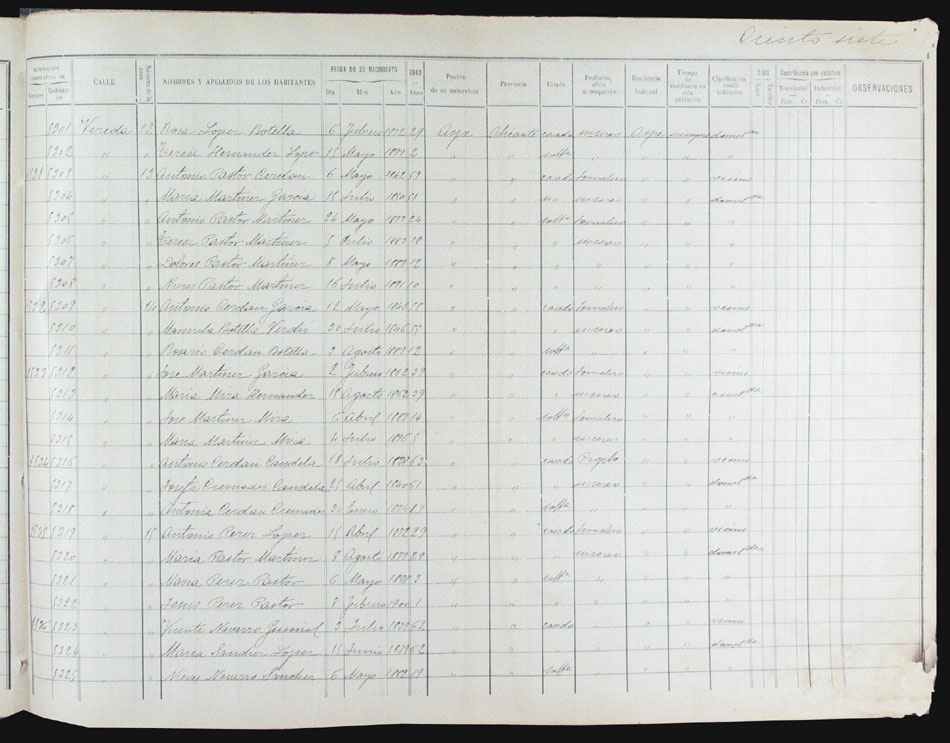 Ciento siete
NUMERACIÓN CORRELATIVA DE Habitantes CALLE Número de la casa NOMBRES Y APELLIDOS DE LOS HABITANTES FECHA DE SU NACIMIENTO Día Mes Año EDAD Años Pueblo de su naturaleza Provincia Estado Profesión, oficio ú ocupación. Residencia habitual Tiempo de residencia en esta población. Clasificación como habitante SABE Leer Escribir Contribución que satisface Territorial Ptas. Cs. Industrial Ptas. Cs. OBSERVACIONES
5301 Vereda 12 Rosa Lopez Botella 6 Febrero 1872 29 Aspe Alicante casada sus labores Aspe siempre domda
5302 " " Teresa Hernandez Lopez 15 Mayo 1899 2 " " solta
1521 5303 " 13 Antonio Pastor Cerdan 6 Mayo 1842 59 " " casado Jornalero " " vecino
5304 " " Maria Martinez Garcia 15 Julio 1850 51 " "
5305 " " Antonio Pastor Martinez 24 Mayo 1877 24 " " solto Jornalero " " "
5306 " " Teresa Pastor Martinez 5 Julio 1883 18 " "
5307 " " Dolores Pastor Martinez 8 Mayo 1889 12 " " " " " " "
5308 " " Nieves Pastor Martinez 16 Julio 1891 10 " " " " " " "
1522 5309 " 14 Antonio Cerdan Garcia 12 Mayo 1843 58 " " casado Jornalero " " vecino
5310 " " Manuela Botella Verdú 20 Julio 1846 55 " "
5311 " " Rosario Cerdan Botella 2 Agosto 1889 12 " " solta " " " "
1523 5312 " " Jose Martinez Garcia 2 Febrero 1862 39 " " casado Jornalero " " vecino
5313 " " Maria Mira Hernandez 18 Agosto 1862 39 " "
5314 " " Jose Martinez Mira 6 Abril 1887 14 " " solto Jornalero " " "
5315 " " Maria Martinez Mira 4 Julio 1896 5 " "
1524 5316 " " Antonio Cerdan Candela 18 Julio 1838 63 " " casado Propio " " vecino
5317 " " Josefa Cremades Candela 25 Abril 1840 61 " "
5318 " " Antonia Cerdan Cremades 20 Enero " " solta " " " "
1525 5319 " 15 Antonio Perez Lopez 15 Abril 1872 29 " " casado Jornalero " " vecino
5320 " " Maria Pastor Martinez 8 Agosto 1873 28 " "
5321 " " Maria Perez Pastor 6 Mayo 1898 3 " " solta " " " "
5322 " " Perez Pastor 8 Febrero 1900 1 " " " " " " "
1526 5323 " " Vicente Navarro 3 Julio 1839 62 " " casado " " " vecino
5324 " " Maria Sanchez Lopez 15 Junio 1839 62 " "
5325 " " Nieves Navarro Sanchez 6 Mayo 1882 19 " " solta " " " "